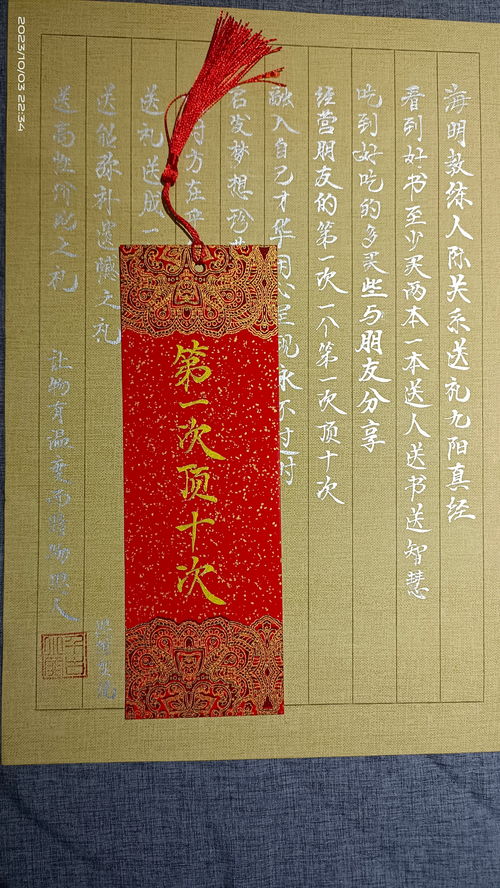 海明教练人际关系送礼九阳真经
看到好书至少买两本一本送人送书送智慧
吃到好吃的多买些与朋友分享
经营朋友的第一次一个第一次顶十次
融入自己才华用心呈现永不过时
启发梦想珍
对方在乎
送礼送成一
送能弥补遗憾之礼
送高性价比之礼 让物有温度而非物
第一次顶十次
2023/10/03 22:34